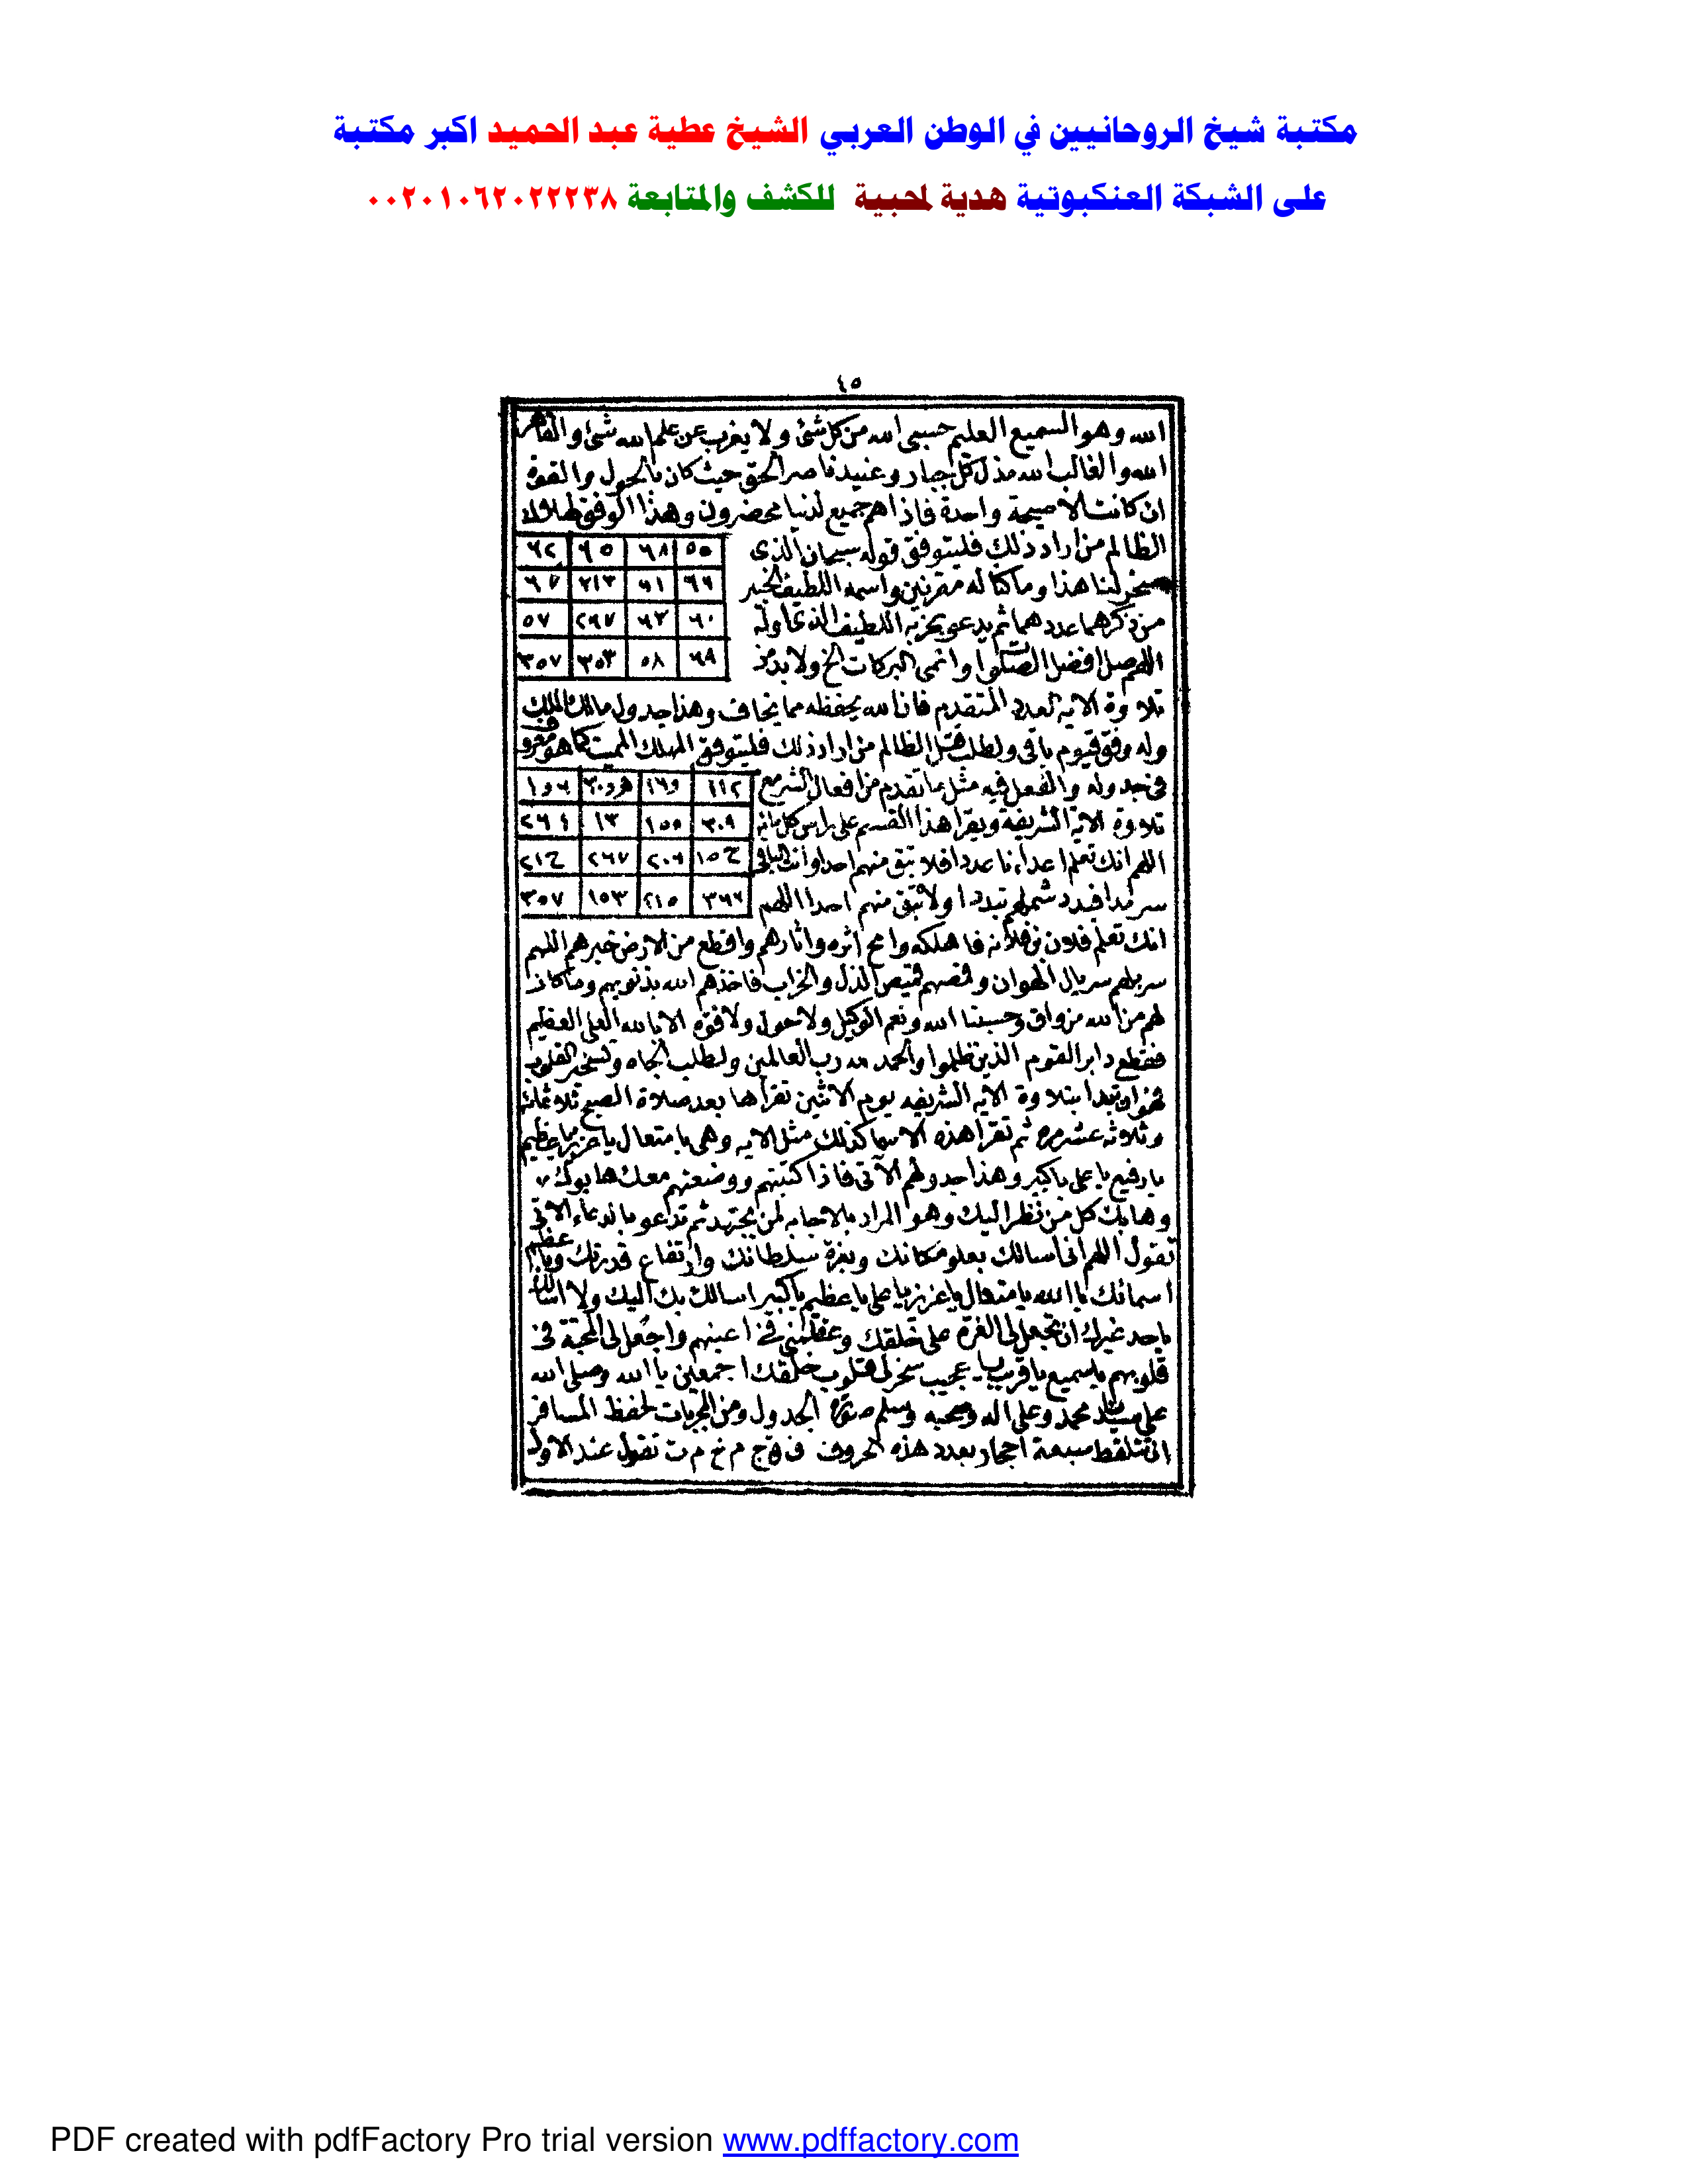 مكتبة شيخ الروحانيين في الوطن العربي الشيخ عطية عبد الحميد اكبر مكتبة
على الشبكة العنكبوتية هدية لمحبية للكشف والمتابعة ٠٠٢٠١٠٦٢٠٢٢٢٣٨
٤٥
الله وهو السميع العليم حسبى الله من كل شئ ولا يغرب عن علم الله شئ والقاهر
الله والغالب الله مذل كل جبار وعنيد ناصر الحق حيث كان بالحول والقوة
ان كانت الا صيحة واحدة فاذا هم جميع لدنيا محضرون وهذا الوفق لهلاك
الظالم من اراد ذلك فليتوفق قوله سبحان الذى
٥٥ ٦٨ ٦٥ ٦٢
سخر لنا هذا وما كنا له مقرنين واسمه اللطيف الخبير
٦٦ ٦١ ٢١٣ ٦٧
من ذكرهما عددهما ثم يدعى بحزبه اللطيف الذى اوله
٦٠ ٦٣ ٢٦٧ ٥٧
اللهم صل افضل الصلوا وانمى البركات الخ ولا بد من
٦٩ ٥٨ ٣٥٣ ٣٥٧
تلاوة الايه لعدد المتقدم فان الله يحفظه مما يخاف وهذا جدول مالك الملك
وله وفق قيوم باقى ولطلب قتل الظالم من اراد ذلك فليتوفق المهلك المميت كما هو معروف
فى جدوله والفعل فيه مثل ما تقدم من افعال الشرمع
تلاوة الاية الشريفة ويقرا هذا القسم على راس كل مائة
٣٠٩ ١٥٥ ١٣ ٢٦٤
اللهم انك تعلم اعداءنا عددا فلا تبق منهم احدا وانت الباقى
سرمدا فبدد شملهم تبددا ولا تبق منهم احدا اللهم
٣٦٧ ٢١٥ ١٥٣ ٣٥٧
انك تعلم فلان بن فلانه فاهلكه وامح اثره واثارهم واقطع من الارض خبرهم اللهم
سربلهم سربال الهوان وقمصهم قميص الذل والخراب فاخذهم الله بذنوبهم وما كان
لهم من الله من واق وحسبنا الله ونعم الوكيل ولا حول ولا قوة الا بالله العلى العظيم
فقطع دابر القوم الذين ظلموا والحمد لله رب العالمين ولطلب الجاه وتسخير القلوب
فهو ان تبدا بتلاوة الايه الشريفه يوم الاثنين تقراها بعد صلاة الصبح ثلاثمائة
وثلاثه عشر مره ثم تقرا هذه الاسما كذلك مثل الايه وهى يا متعال يا عزيز يا عظيم
يا رفيع يا على يا كبير وهذا جدولهم الآتى فاذا كتبتهم ووضعتهم معك هابوك
وهابك كل من نظر اليك وهو المراد بالاجابه لمن يجتهد ثم تدعو بالدعاء الاتى
تقول اللهم انى اسالك بعلو مكانك وبعزة سلطانك وارتفاع قدرتك وبا عظيم
اسمائك يا الله يا متعال يا عزيز يا على يا عظيم يا كبير اسالك بك اليك ولا اسالك
باحد غيرك ان تجعل لى العزة على خلقك وعظمنى فى اعينهم واجعل لى المحبة فى
قلوبهم يا سميع يا قريب يا مجيب سخر لى قلوب خلقك اجمعين يا الله وصلى الله
على سيدنا محمد وعلى اله وصحبه وسلم صورة الجدول ومن المجربات لحفظ المسافر
ان تلتقط سبعة احجار بعدد هذه الحروف ف ق ج م خ م ت تقول عند الاول
PDF created with pdfFactory Pro trial version www.pdffactory.com